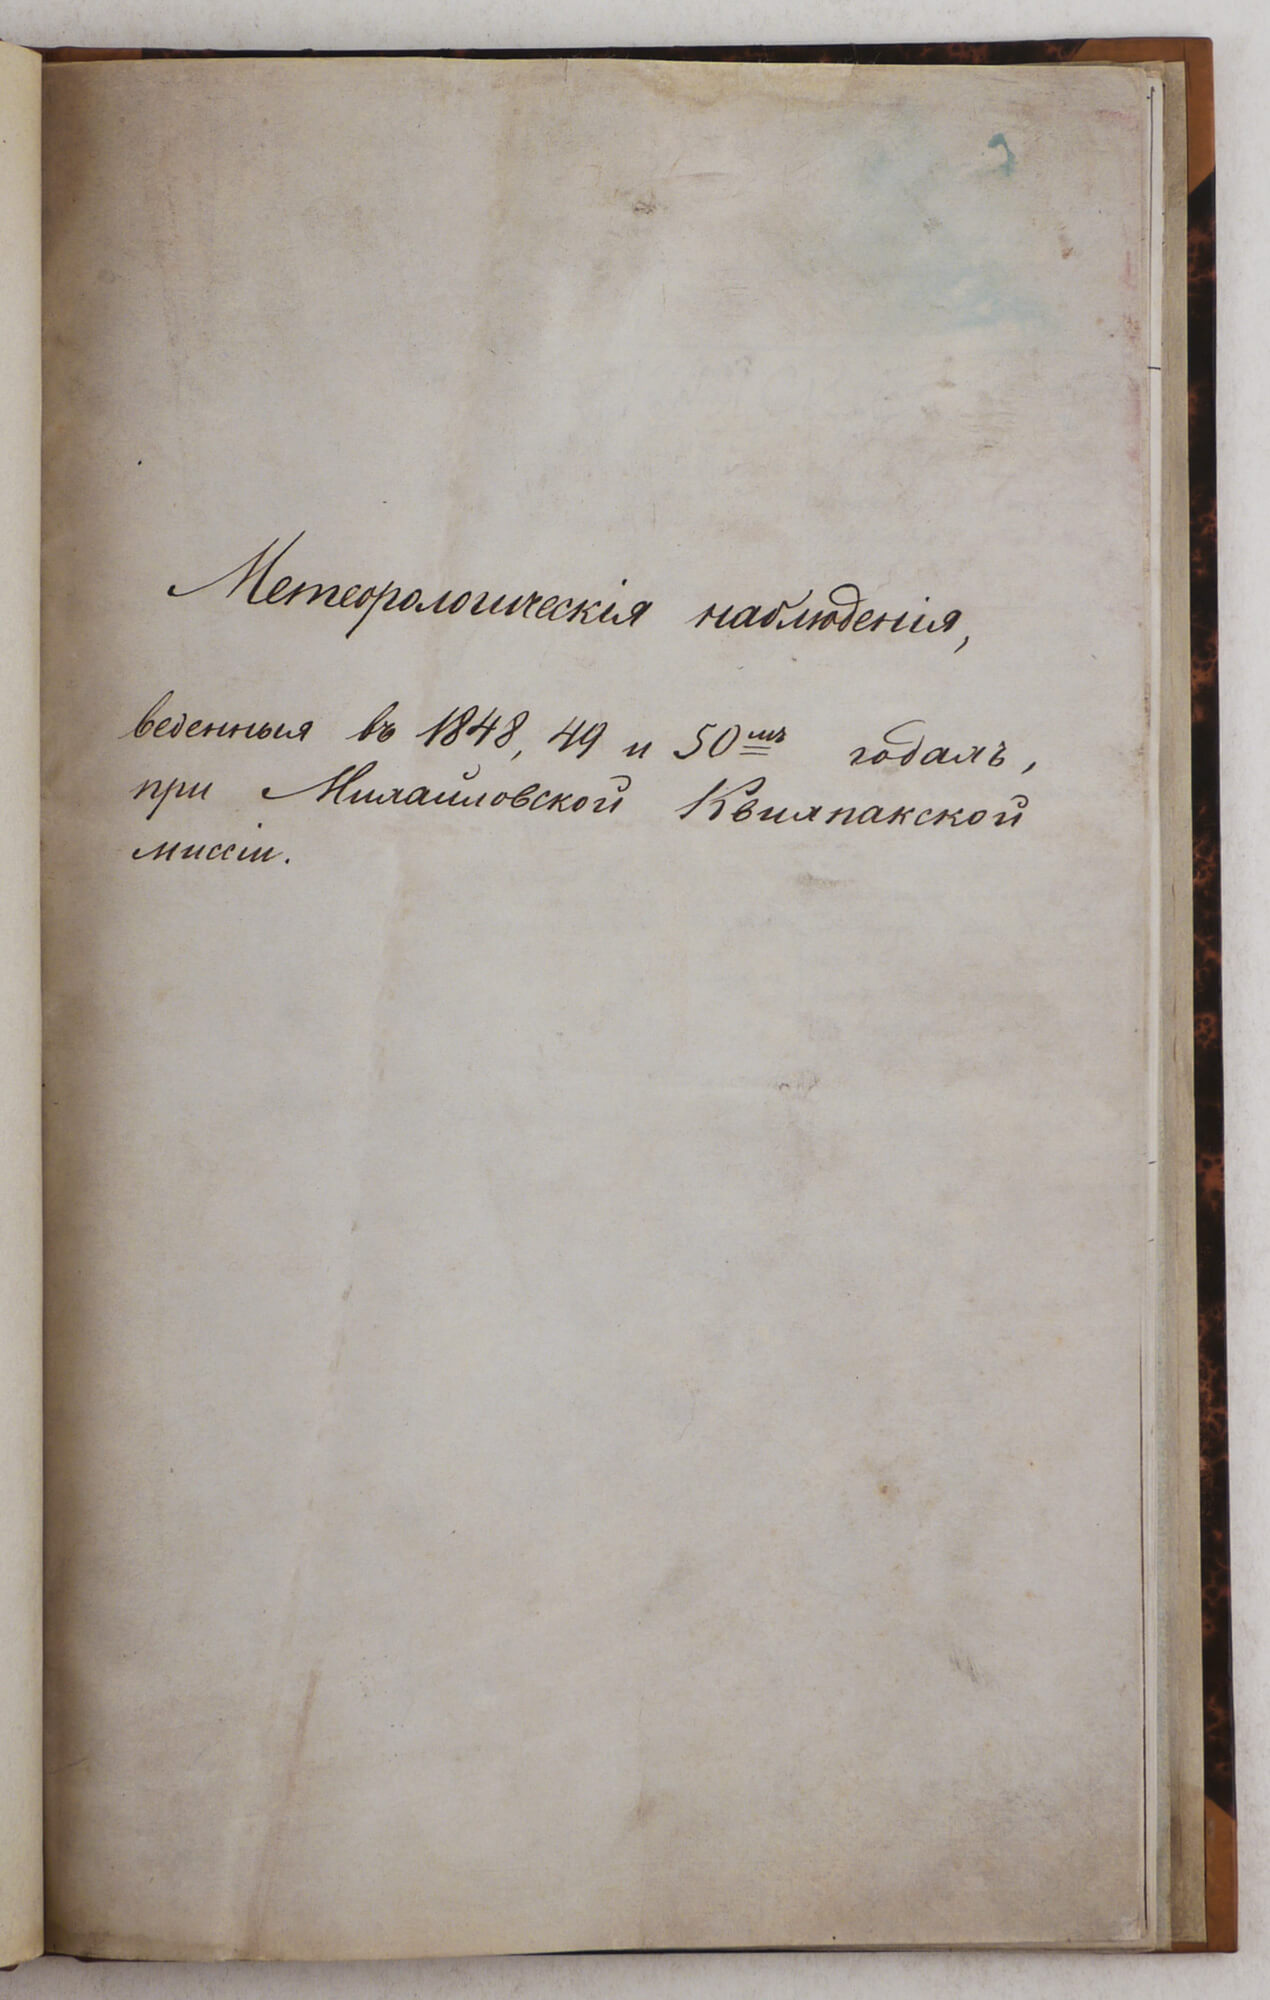 Метеорологическія наблюденія,
веденныя въ 1848, 49 и 50мъ годахъ,
при Михайловской Квихпакской
миссіи.